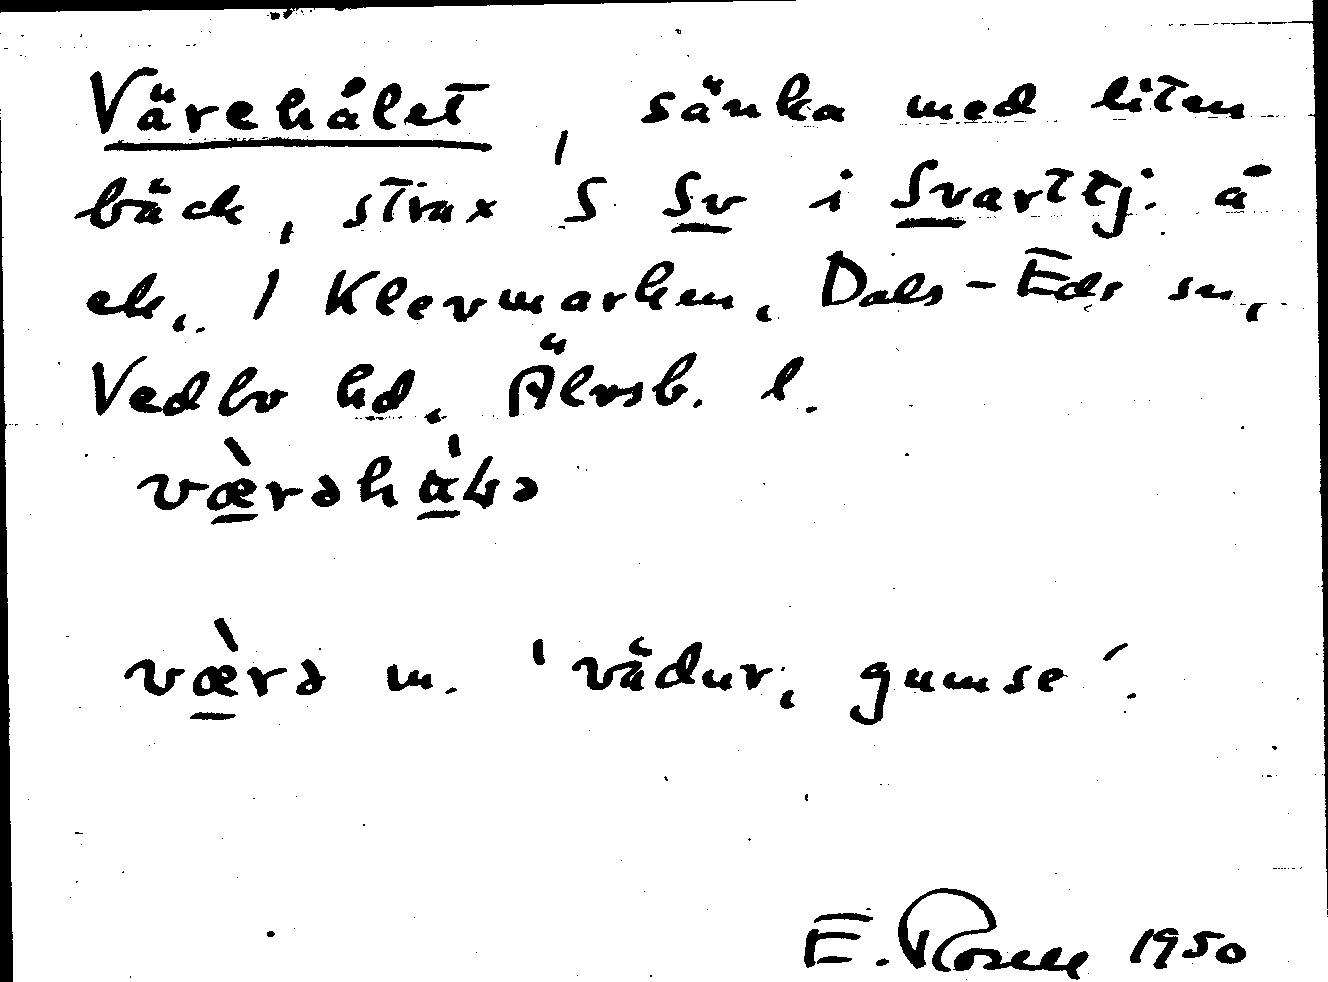 Värehålet, sänka med liten
bäck, strax S Sv i Svarttj. å
ek. 1 Klevmarken, Dals-Eds sn,
Vedbo hd, Älvsb. l.
værəhålə
værə m. 'vädur, gumse'.
E. Rosell 1950